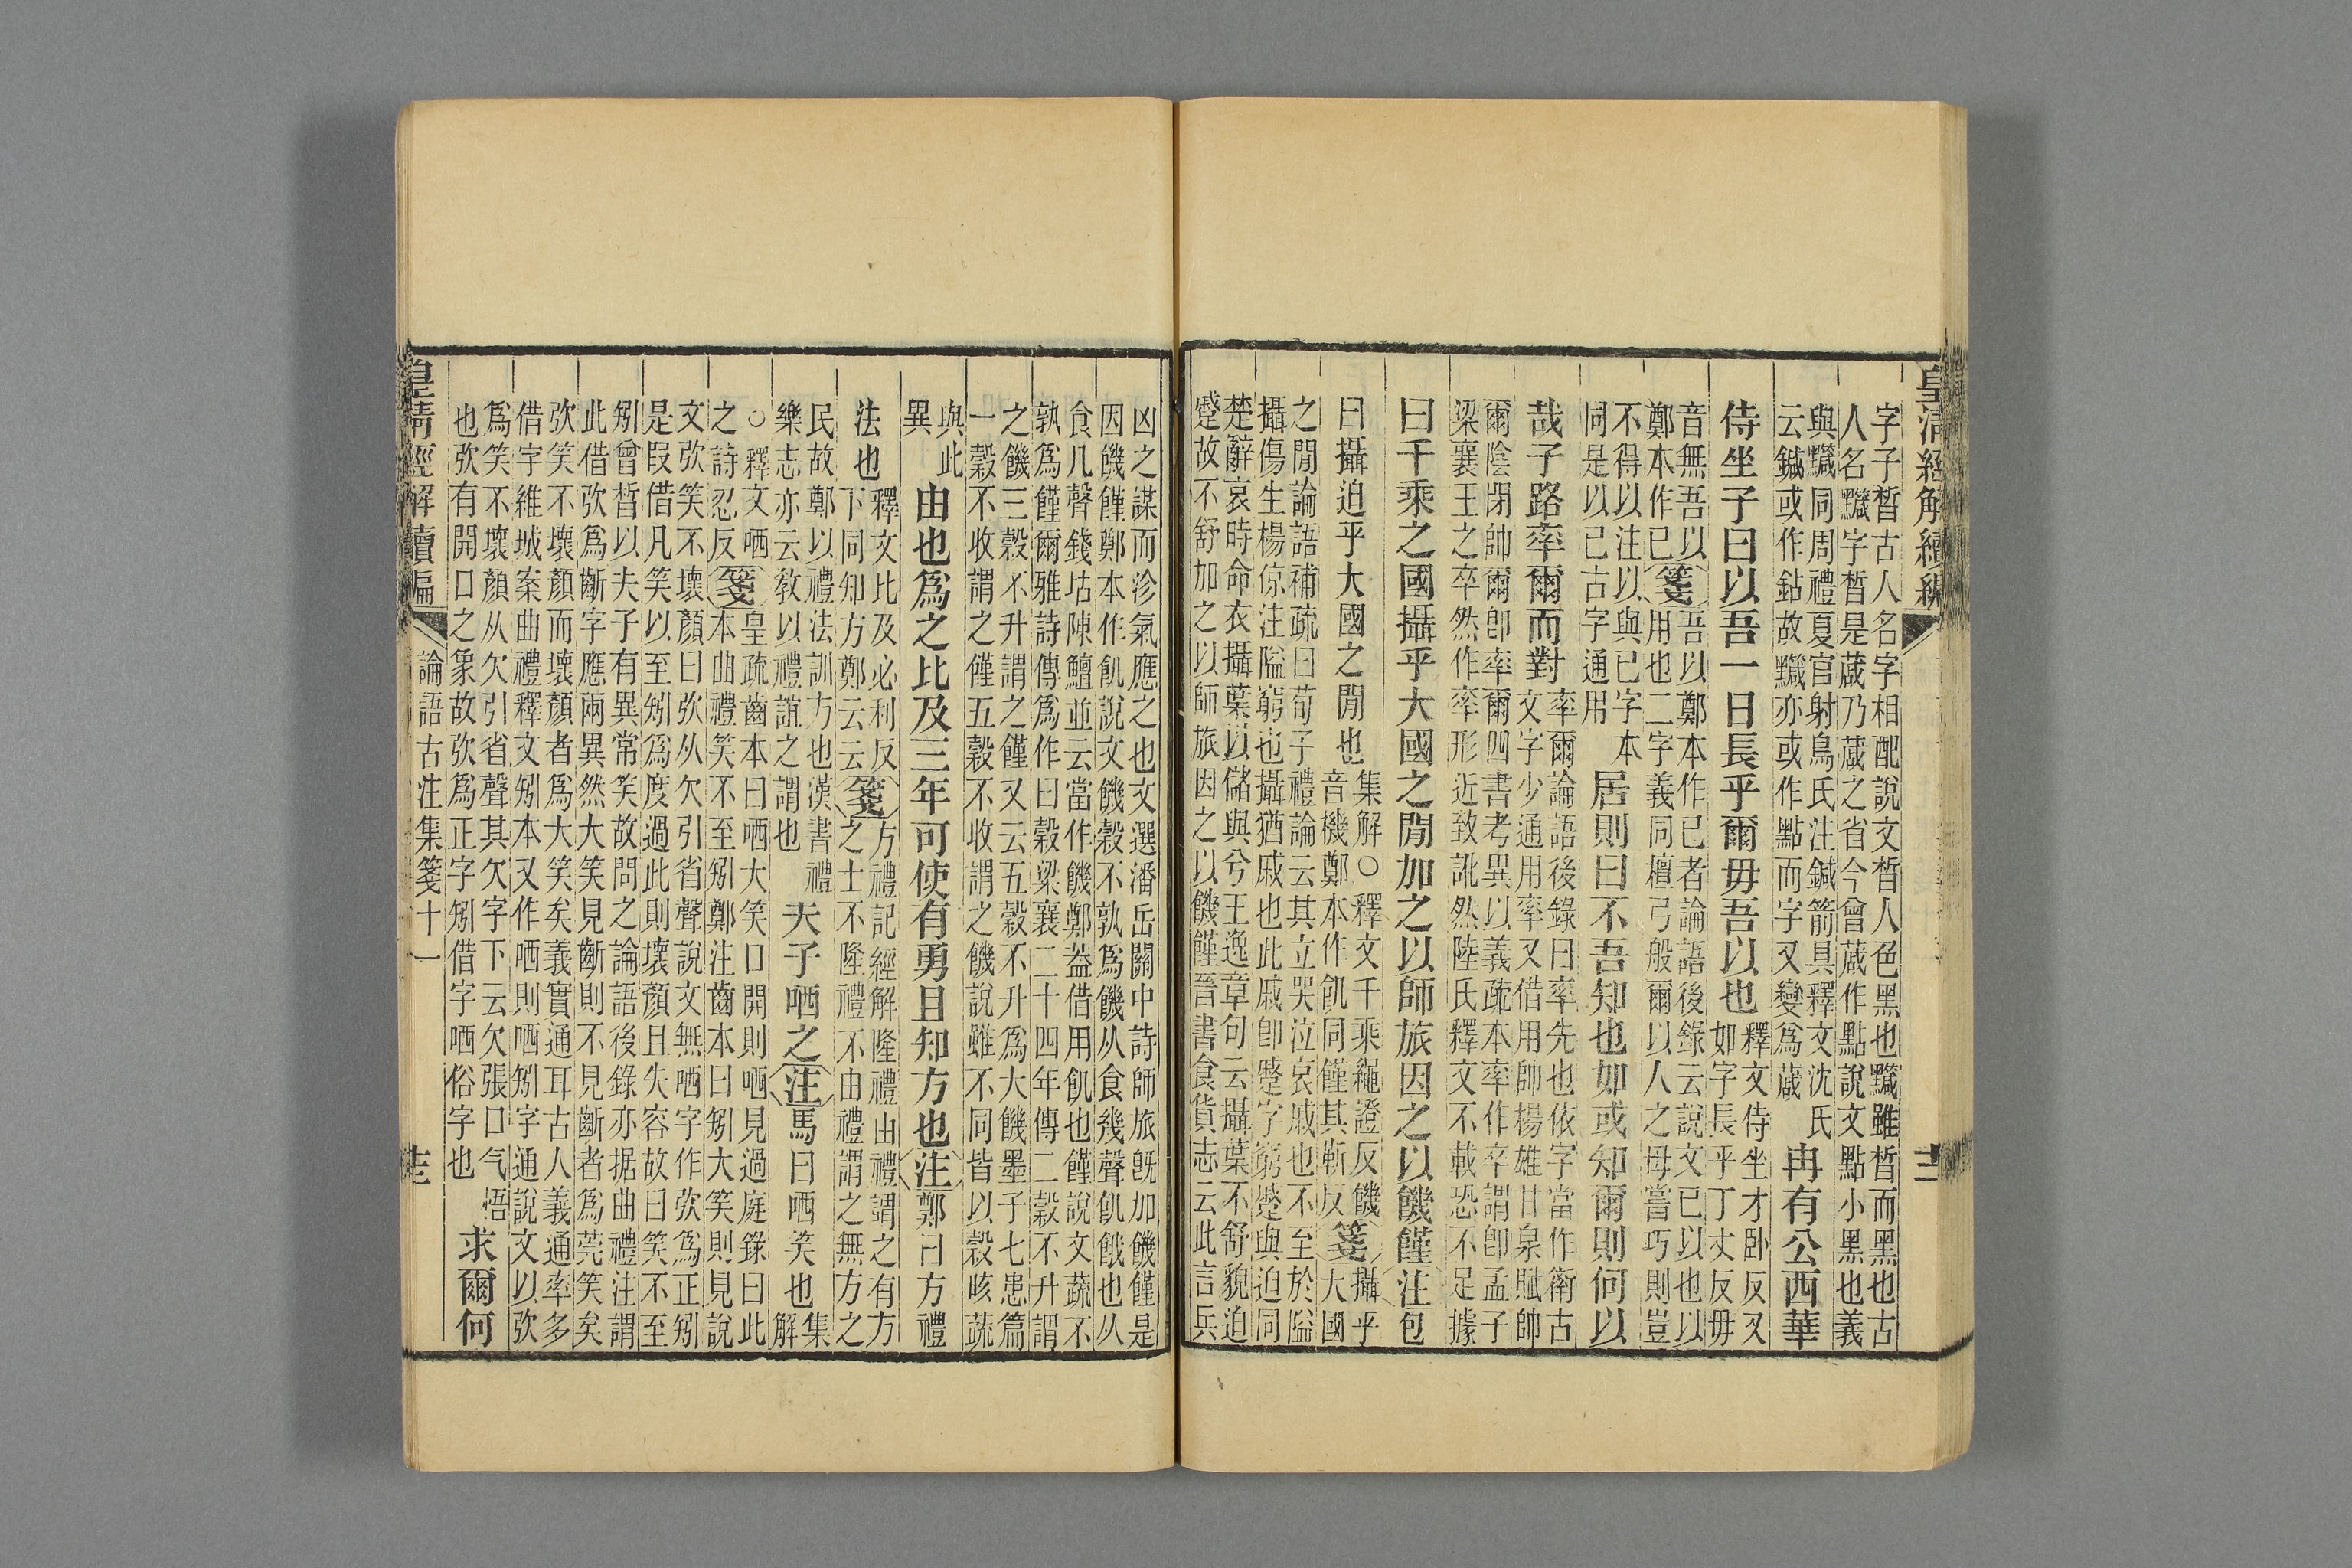 皇清經解續編
字子皙古人名字相配說文皙人色黑也黬雖皙而黑也古
人名黬字皙是蒧乃葴之省今曾蒧作點說文點小黑也義
與黬同周禮夏官射鳥氏注鍼箭具釋文沈氏
云鍼或作鉆故黬亦或作點而字又變為蒧
冉有公西華
侍坐子曰以吾一日長乎爾毋吾以也
釋文侍坐才臥反又
如字長乎丁丈反毋
音無吾以鄭本作已者論語後錄云說文已以也以
鄭本作已
箋
吾以鄭本作已者論語後錄云說文已以也以
用也二字義同檀弓般爾以人之母嘗巧則豈
不得以注以與已字本
同是以已古字通用
居則曰不吾知也如或知爾則何以
哉子路率爾而對
率爾論語後錄曰率先也依字當作衛古
文字少通用率又借用帥楊雄甘泉賦帥
爾陰閉帥爾卽率爾四書考異以義疏本率作卒謂卽孟子
梁襄王之卒然作率形近致訛然陸氏釋文不載恐不足據
曰千乘之國攝乎大國之閒加之以師旅因之以饑饉
注
包
曰攝迫乎大國之閒也
集解○釋文千乘繩證反饑
音機鄭本作飢同饉其靳反
箋
攝乎
大國
之閒論語補疏曰荀子禮論云其立哭泣哀戚也不至於隘
攝傷生楊倞注隘窮也攝猶戚也此戚卽蹙字窮蹙與迫同
楚辭哀時命衣攝葉以儲與兮王逸章句云攝葉不舒貌迫
蹙故不舒加之以師旅因之以饑饉晉書食貨志云此言兵
凶之謀而沴氣應之也文選潘岳關中詩師旅旣加饑饉是
因饑饉鄭本作飢說文饑穀不孰為饑从食幾聲飢餓也从
食几聲錢坫陳鱣並云當作饑鄭葢借用飢也饉說文蔬不
孰為饉爾雅詩傳為作曰穀梁襄二十四年傳二穀不升謂
之饑三穀不升謂之饉又云五穀不升為大饑墨子七患篇
一穀不收謂之饉五穀不收謂之饑說雖不同皆以穀晐蔬
與此
異
由也為之比及三年可使有勇且知方也
注
鄭曰方禮
法也
釋文比及必利反
下同知方鄭云云
箋
方禮記經解隆禮由禮謂之有方
之士不隆禮不由禮謂之無方之
民故鄭以禮法訓方也漢書禮
樂志亦云敎以禮誼之謂也
夫子哂之
注
馬曰哂笑也
集
解
○釋文哂
之詩忍反
箋
皇疏齒本曰哂大笑口開則哂見過庭錄曰此
本曲禮笑不至矧鄭注齒本曰矧大笑則見說
文弞笑不壞顏曰弞从欠引省聲說文無哂字作弞為正矧
是叚借凡笑以至矧為度過此則壞顏且失容故曰笑不至
矧曾皙以夫子有異常笑故問之論語後錄亦据曲禮注謂
此借弞為齗字應兩異然大笑見齗則不見齗者為莞笑矣
弞笑不壞顏而壞顏者為大笑矣義實通耳古人義通率多
借字維城案曲禮釋文矧本又作哂則哂矧字通說文以弞
為笑不壞顏从欠引省聲其欠字下云欠張口气悟
也弞有開口之象故弞為正字矧借字哂俗字也
求爾何
皇清經解續編
論語古注集箋十一